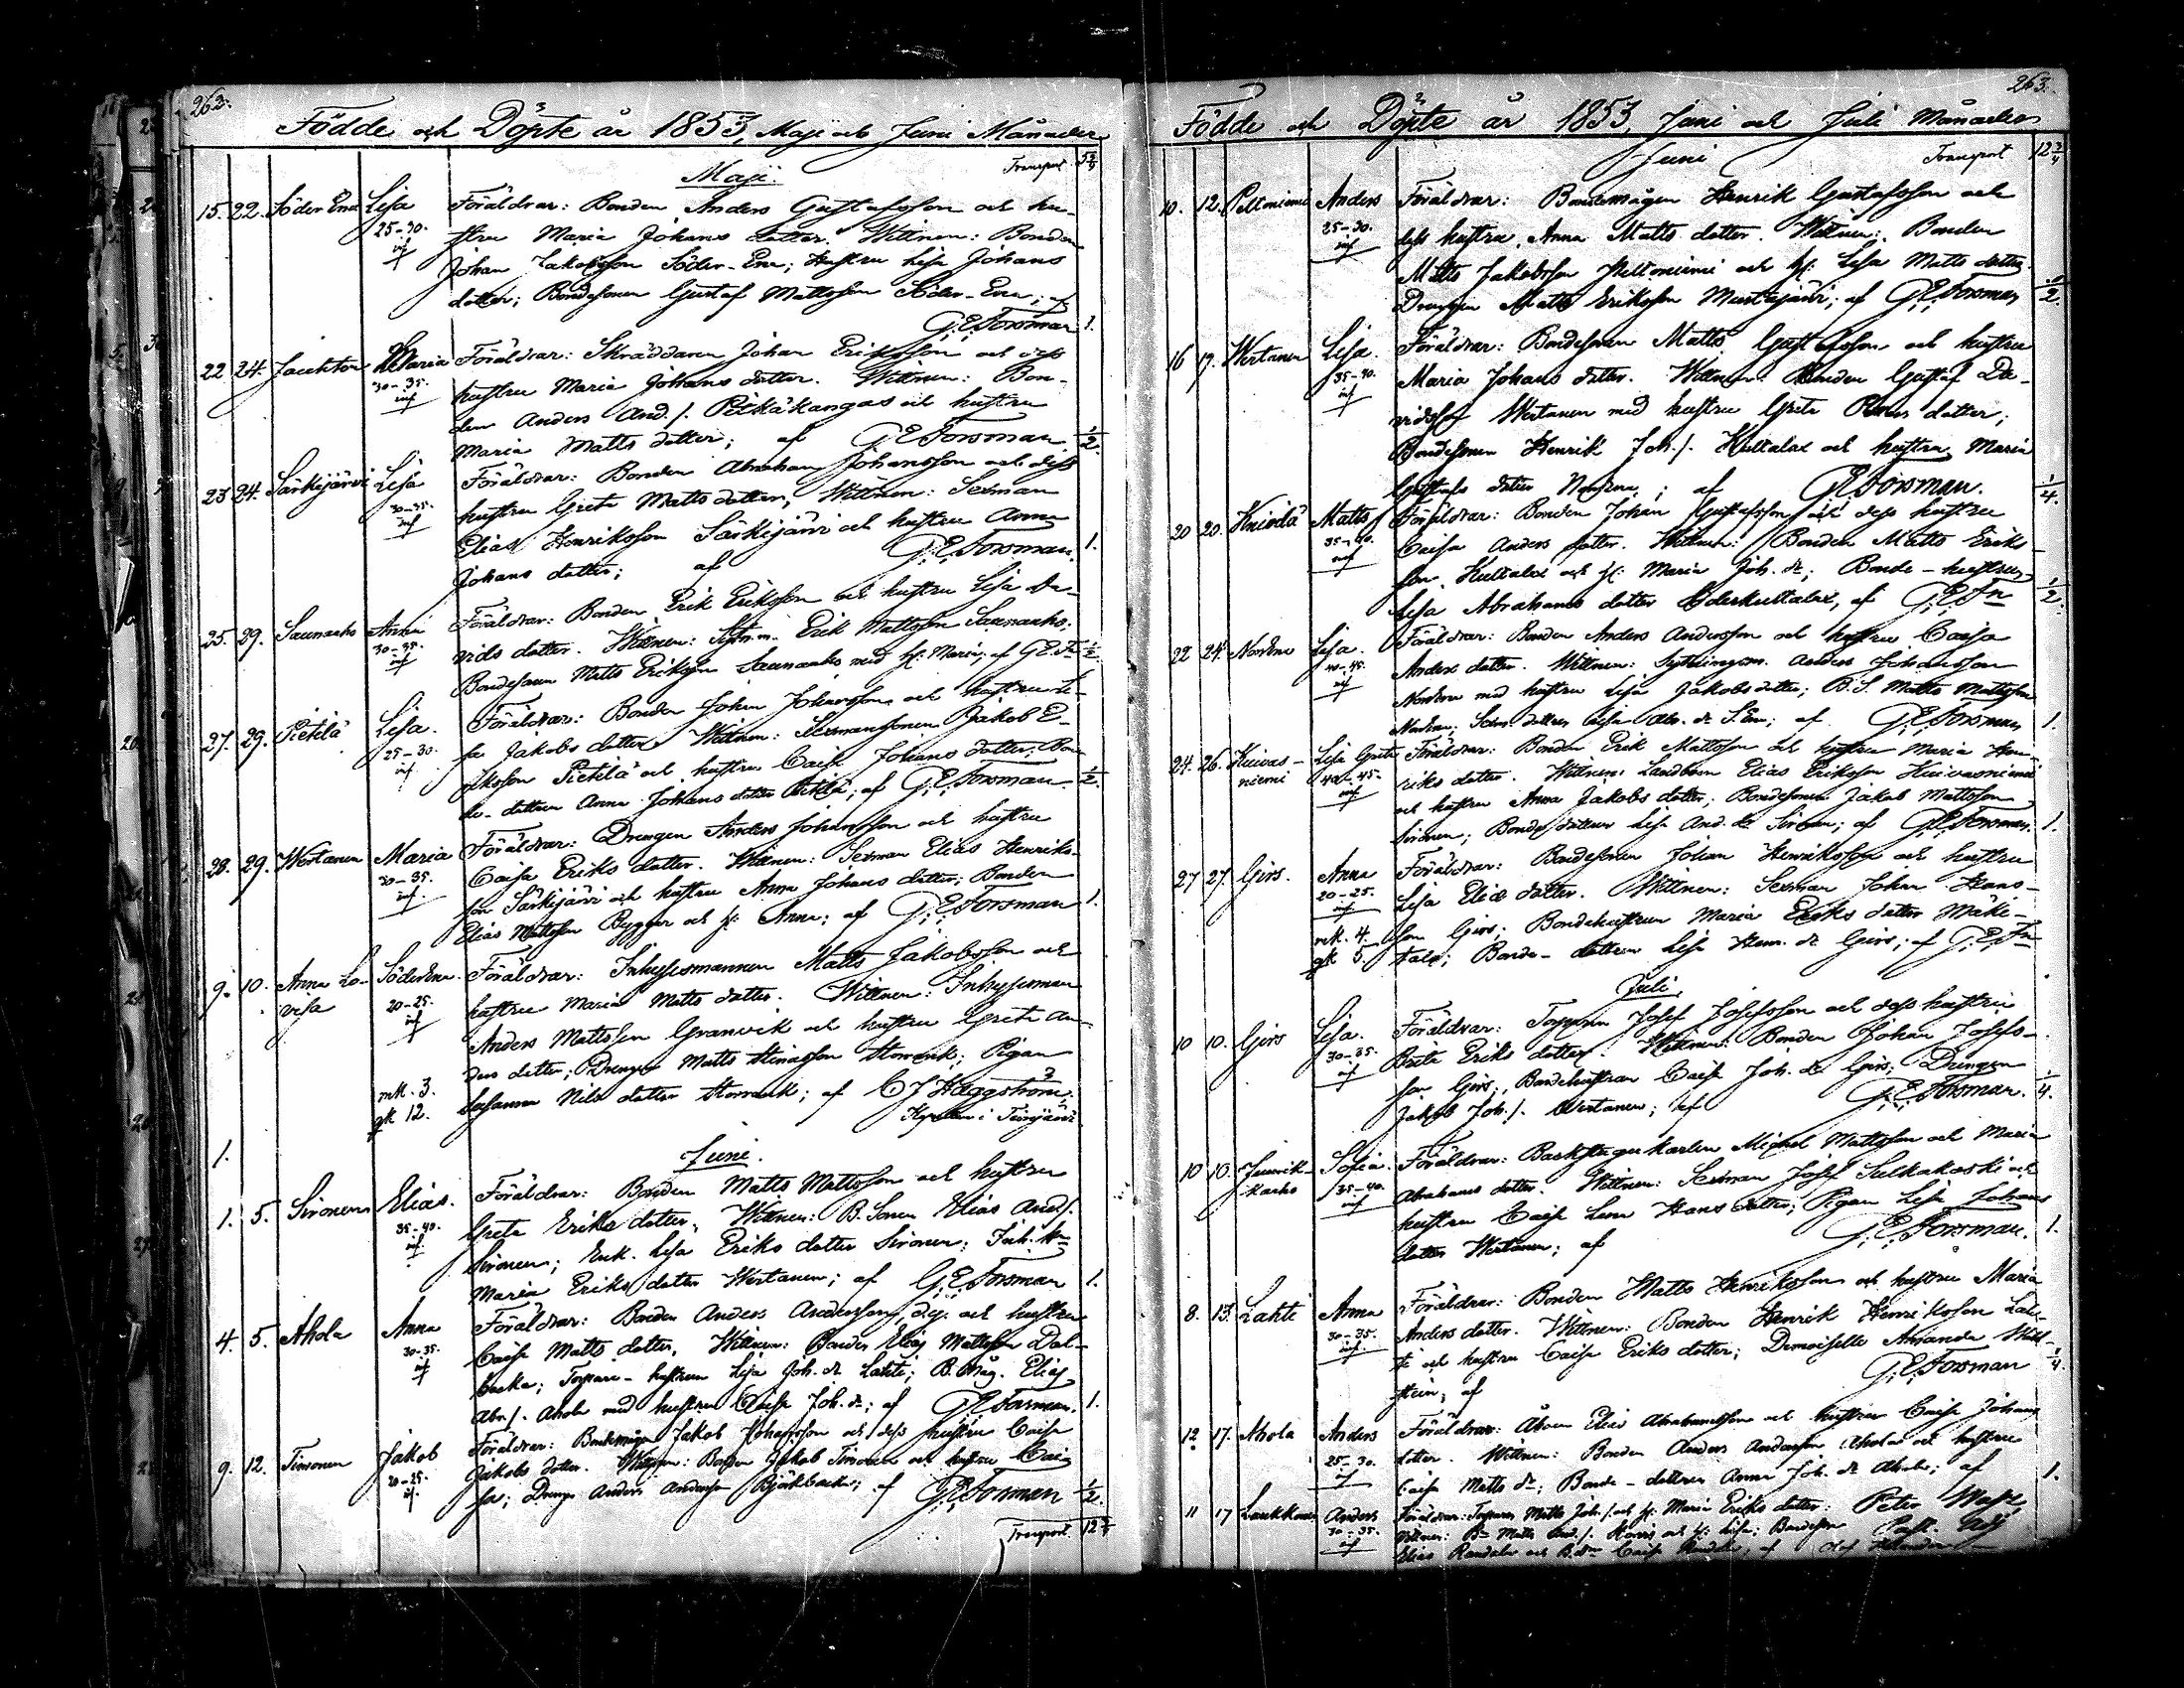 262.
Födde och Döpte år 1853, Maji och Juni Månader
Transport 5 3/4
Maji.
15. 22. Söder Ena Lisa Föräldrar: Bonden Anders Gustafsson och hu-
25-30. stru Maria Johans dotter. Wittnen: Bonden
Johan Jakobsson Söder-Ena; Hustru Lisa Johans
dotter; Bondesonen Gustaf Mattsson Söder-Ena; af
G. E. Forsman 1.
22 24. Maria Föräldrar: Skräddaren Johan Eriksson och dess
30-35. hustru Maria Johans dotter. Wittnen: Bon-
den Anders And./. Pitkäkangas och hustru
Maria Matts dotter; af G. E. Forsman 1/2.
23 24. Särkijärvi Lisa Föräldrar: Bonden Abraham Johansson och dess
30-35. hustru Greta Matts dotter, Wittnen: Sexman
Elias Henriksson Särkijärvi och hustru Anna
Johans dotter; af G. E. Forsman. 1.
25. 29. Saunaaho Anna Föräldrar: Bonden Erik Eriksson och hustru Lisa Da-
30-35. vids dotter. Wittnen: Erik Mattsson Saunaaho;
Bondesonen Matts Eriksson Saunaaho med h: Maria; af G. E. Fn 1/2.
27. 29. Pietilä Lisa. Föräldrar: Bonden Johan Johansson och hustru Li-
25-30. sa Jakobs dotter. Wittnen: Sexmanssonen Jakob E-
riksson Pietilä och hustru Caisa Johans dotter; Bon-
de-dottren Anna Johans dotter Pietilä; af G. E. Forsman. 1/2.
28. 29. Wertanen Maria Föräldrar: Drengen Anders Johansson och hustru
30-35. Caisa Eriks dotter. Wittnen: Sexman Elias Henriks-
son Särkijärvi och hustru Anna Johans dotter; Bonden
Elias Mattsson Byggar och h: Anna; af G. E. Forsman 1.
9. 10. Anna Lo- Söder Ena. Föräldrar: Inhysesmannen Matts Jakobsson och
visa 20-25. hustru Maria Matts dotter. Wittnen: Inhysesman
Anders Mattsson Granvik och hustru Greta An-
ders dotter; Drengen Matts Storvik; Pigan
mk. 3. Susanna Nils dotter Storvik; af C J Häggström
qk 12.
1. Juni.
1. 5. Sironen Elias. Föräldrar: Bonden Matts Mattsson och hustru
35-40. Greta Eriks dotter, Wittnen: B. Sonen Elias And./.
Sironen; Enk. Lisa Eriks dotter Sironen; Inh.
Maria Eriks dotter Wertanen; af G. E. Forsman 1.
4. 5. Ahola Anna Föräldrar: Bonden Anders Andersson, d.y. och hustru
30-35. Caisa Matts dotter, Wittnen: Bonden Elias Mattsson Dal-
backa; Torpare-hustrun Lisa Joh. dr Lahti; B. Måg. Elias
Abr./. Ahola med hustru Caisa Joh. dr; af G. E. Forsman. 1.
9. 12. Timonen Jakob Föräldrar: Bondemågen Jakob Johansson och dess hustru Caisa
20-25. Jakobs dotter. Wittnen: Bonden Jakob Timonen och hustru Cai-
sa; Drengen Anders Andersson Björkbacka; af G. E. Forsman 1/2.
Transport. 12 3/4
263.
Födde och Döpte år 1853, Juni och Juli Månader
Juni Transport 12 3/4
10. 12. Peltoniemi Anders Föräldrar: Bondemågen Henrik Gustafsson och
25-30. dess hustru, Anna Matts dotter. Wittnen: Bonden
Matts Jakobsson Peltoniemi och h: Lisa Matts dotter
Drengen Matts Eriksson Mustajärvi; af G. E. Forsman 1/2.
16 17. Wertanen Lisa. Föräldrar: Bondesonen Matts Gustafsson och hustru
35-40. Maria Johans dotter. Wittnen: Bonden Gustaf Da-
vidsson Wertanen med hustru Greta dotter;
Bondesonen Henrik Joh./. Kultalax och hustru Maria
Gustafs dotter; af G. E. Forsman. 1/4.
20 20. Knivilä Matts Föräldrar: Bonden Johan Gustafsson och dess hustru
35-40. Caisa Anders dotter. Wittnen: Bonden Matts Eriks-
son Kultalax och h: Maria Joh. dr; Bonde-hustrun
Lisa Abrahams dotter; af G. E. Fn 1/2.
22 24. Nordena Lisa. Föräldrar: Bonden Anders Andersson och hustru Caisa
40-45. Anders dotter. Wittnen: Sytningsm. Anders Johansson
Nordena med hustru Lisa Jakobs dotter; B. S. Matts Mattsson
Nordena; af G. E. Forsman 1.
24. 26. Hietas- Lisa Greta Föräldrar: Bonden Erik Mattsson och hustru Maria Hen-
niemi 40-45. riks dotter. Wittnen: Landbonden Elias Eriksson
och hustru Anna Jakobs dotter; Bondesonen Jakob Mattsson
Sironen; Bonde dottren Lisa And. dr Sironen; af G. E. Forsman. 1.
27 27. Girs. Anna Föräldrar: Bondesonen Johan Henriksson och hustru
20-25. Lisa Elias dotter. Wittnen: Sexman Johan Hans-
mk. 4. son Girs; Bondehustrun Maria Eriks dotter Mäki-
qk 5. talo; Bonde-dottren Lisa Henr. dr Girs; af G. E. Fn
Juli.
10 10. Girs Lisa. Föräldrar: Torparen Josef Josefsson och dess hustru
30-35. Brita Eriks dotter. Wittnen: Bonden Johan Josefs-
son Girs; Bondehustrun Caisa Joh. dr Girs; Drengen
Jakob Joh./. Wertanen; af G. E. Forsman. 1/4.
10 10. Sofia. Föräldrar: Backstugukarlen Michel Mattsson och Maria
35-40. Abrahams dotter. Wittnen: Sexman Josef Sulkakoski och
hustru Caisa Hans dotter; Pigan Lisa Johans
dotter Wertanen; af G. E. Forsman. 1.
8. 13. Lahti Anna Föräldrar: Bonden Matts Henriksson och hustru Maria
30-35. Anders dotter. Wittnen: Bonden Henrik Henriksson Lah-
ti och hustru Caisa Eriks dotter; Demoiselle Amanda
af G. E. Forsman 1/4.
12 17. Ahola Anders Föräldrar: Elias Abrahamsson och hustru Caisa Johans
25-30. dotter. Wittnen: Bonden Anders Andersson Ahola och hustru
Caisa Matts dr; Bonde-dottren Anna Joh. dr Ahola; af 1.
11 17 Laukkonen Anders Föräldrar: Torparen Matts Joh./. och h: Maria Eriks dotter:
30-35. Wittnen: Matts And./. och h: Lisa; Bondesonen
Elias